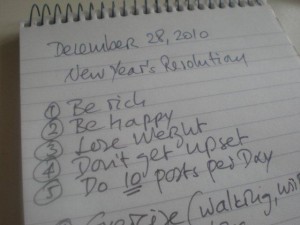 December 28, 2010
New Year's Resolution
① Be rich
② Be happy
③ Lose Weight
④ Don't get upset
⑤ Do 10 posts per Day
Exercise (walking,